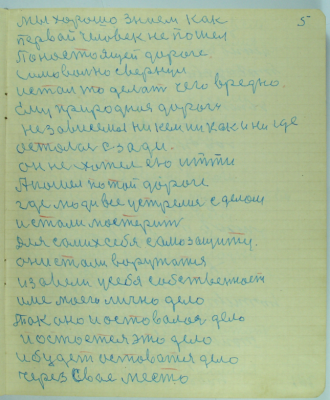 5
мы хорошо знием как
первай человек не пошел
Понастоящей дороге.
Самоволно свернул
истал то делат чего вредно.
Ему природная дорога
независемая ни кем ни как и ни где
осталас сзади.
он не хотел ею итти
Апошел потой дороге
где люди все устремив с делом
истали мастерит
для самихсебя самозащиту.
они стали воружатся
изавели усебя собственост
име моего лично дело
Так оно и остовалос дело
и остоется это дело
ибудет остоватся дело
через свае место